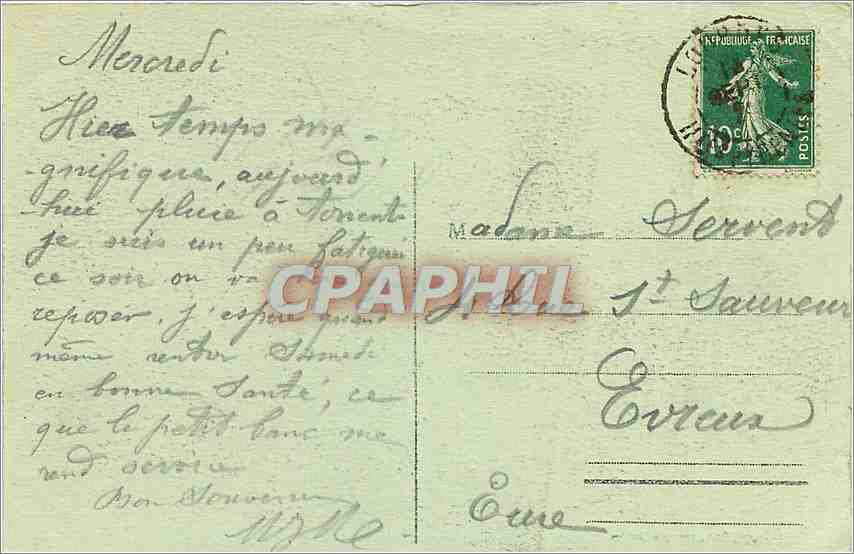 Mercredi
Hier temps ma-
gnifique, aujourd'
hui pluie à torrents
je suis un peu fatigué
ce soir on va
reposer, j'espère quand
même rentrer Samedi
en bonne Santé, ce
que le petit banc me
rend service
Bon Souvenir
REPUBLIQUE FRANÇAISE
10c
POSTES
Madame Servent
St Sauveur
Evreux
Eure
CPARPHIL